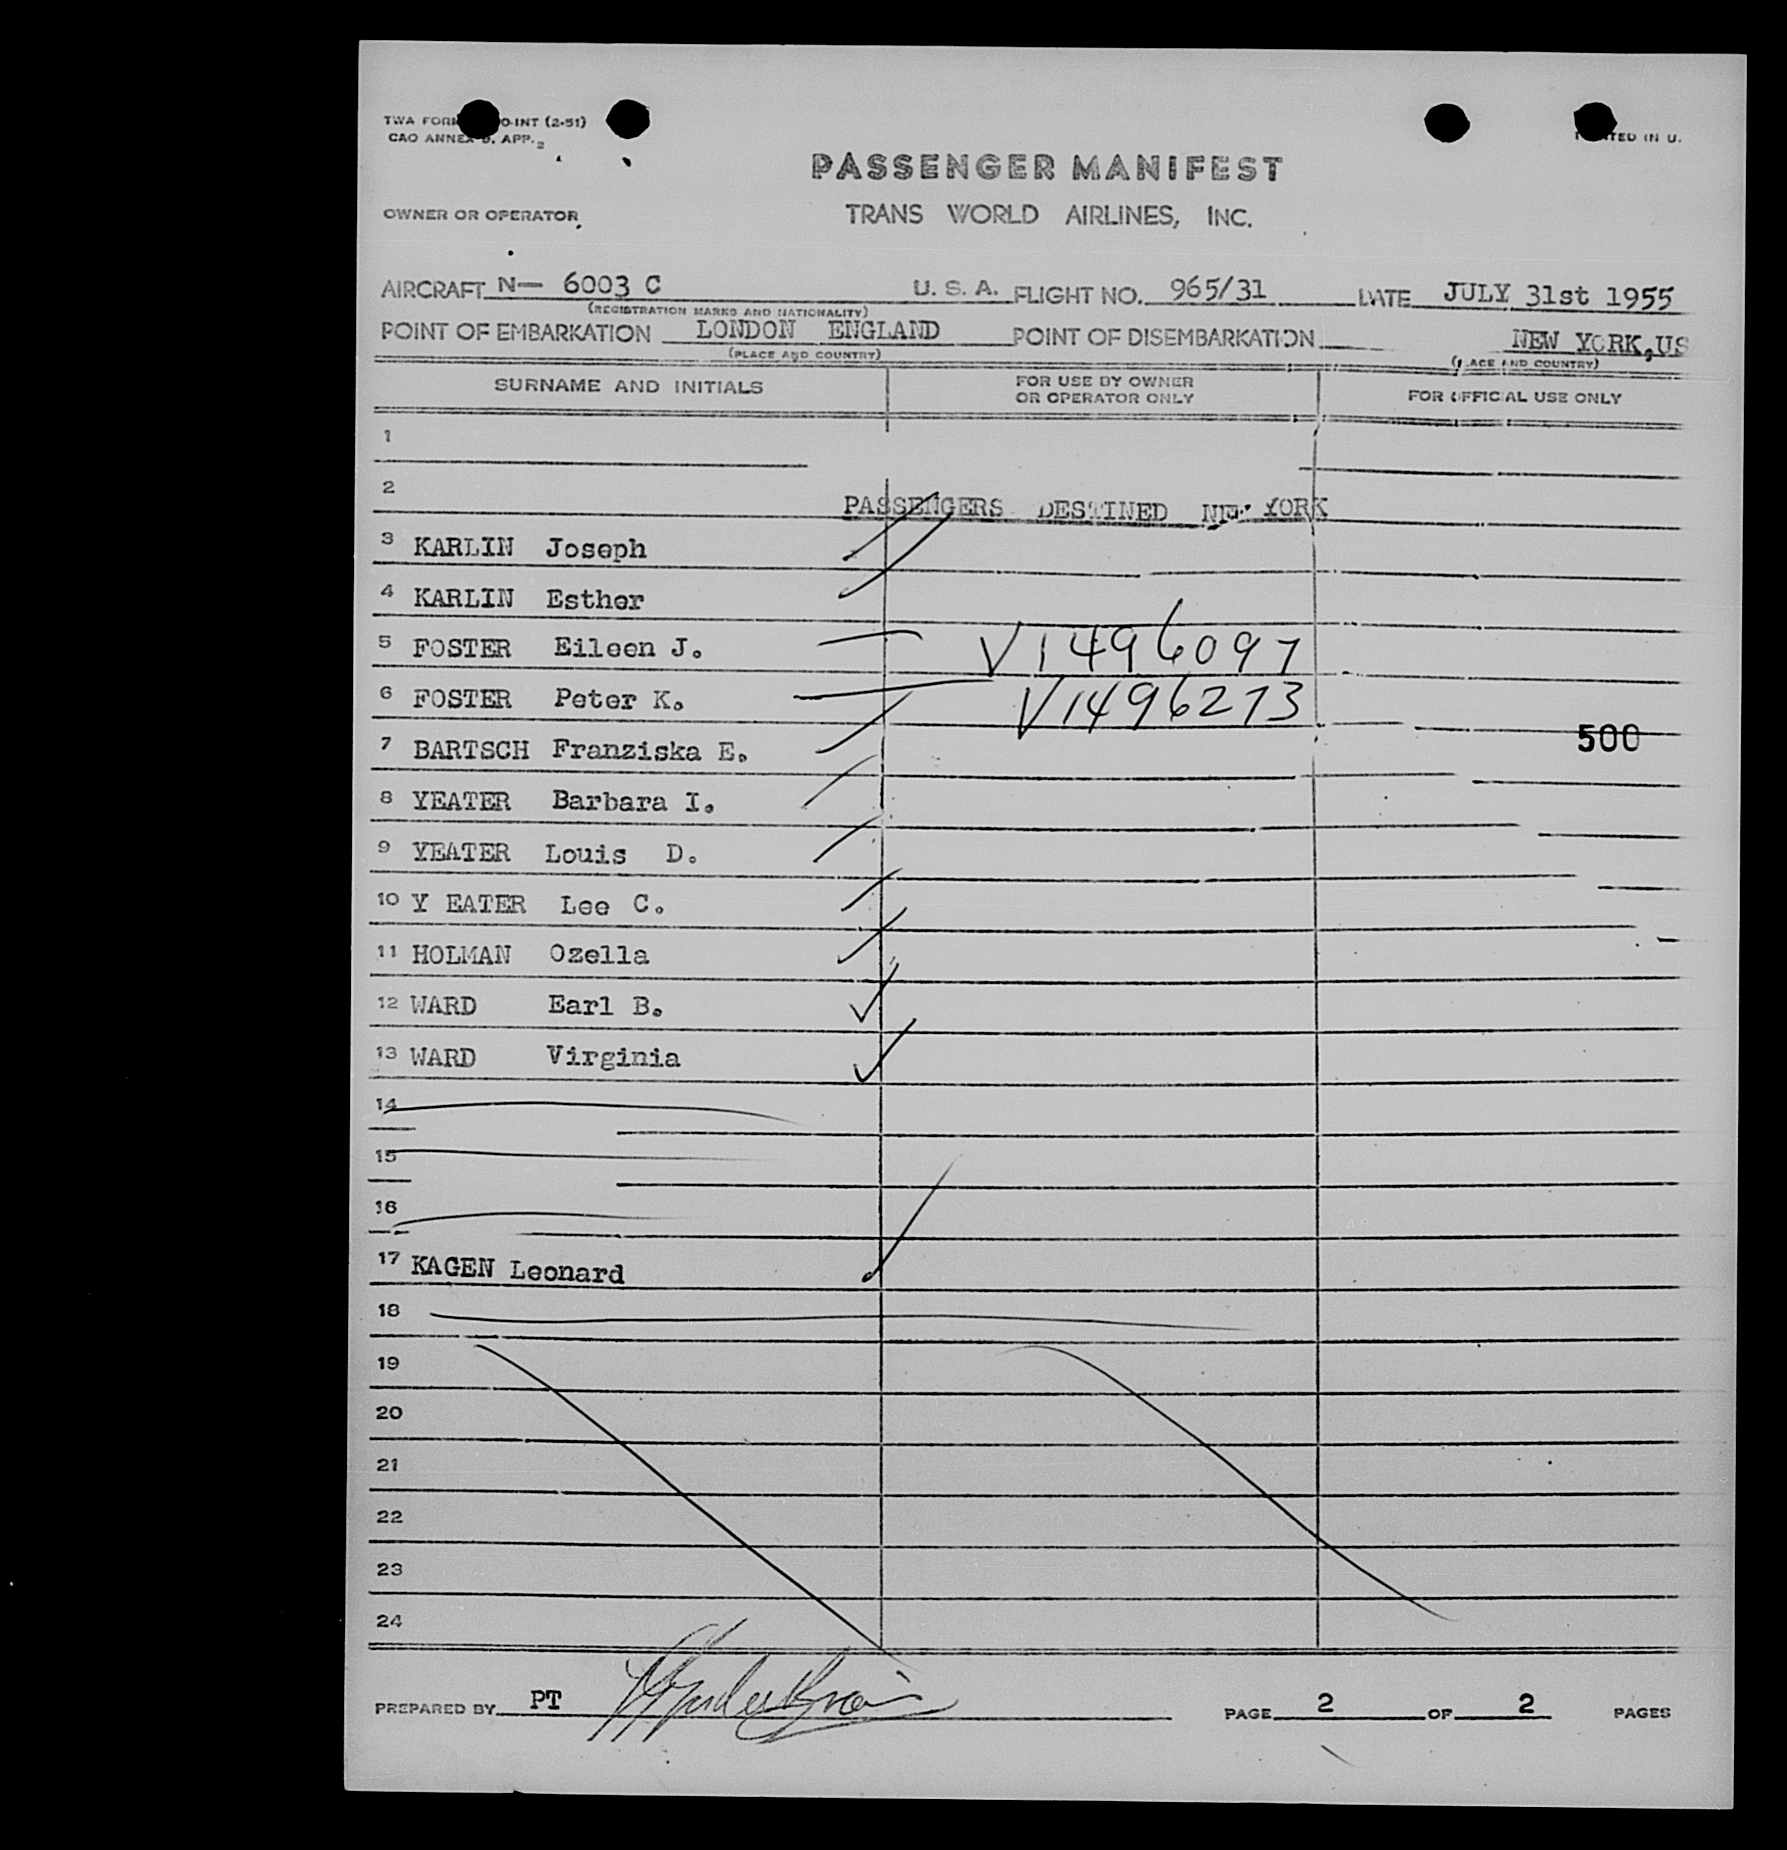 TWA FORM O-INT (2-51)
CAO ANNEX 9, APP. 2
PRINTED IN U.
PASSENGER MANIFEST
OWNER OR OPERATOR
TRANS WORLD AIRLINES, INC.
AIRCRAFT N— 6003 C U. S. A. FLIGHT NO. 965/31 DATE JULY 31st 1955
(REGISTRATION MARKS AND NATIONALITY)
POINT OF EMBARKATION LONDON ENGLAND POINT OF DISEMBARKATION NEW YORK,US
(PLACE AND COUNTRY) (PLACE AND COUNTRY)
SURNAME AND INITIALS FOR USE BY OWNER OR OPERATOR ONLY FOR OFFICIAL USE ONLY
1
2 PASSENGERS DESTINED NEW YORK
3 KARLIN Joseph
4 KARLIN Esther
5 FOSTER Eileen J. V1496097
6 FOSTER Peter K. V1496273
7 BARTSCH Franziska E. 500
8 YEATER Barbara I.
9 YEATER Louis D.
10 Y EATER Lee C.
11 HOLMAN Ozella
12 WARD Earl B.
13 WARD Virginia
14
15
16
17 KAGEN Leonard
18
19
20
21
22
23
24
PREPARED BY PT PAGE 2 OF 2 PAGES